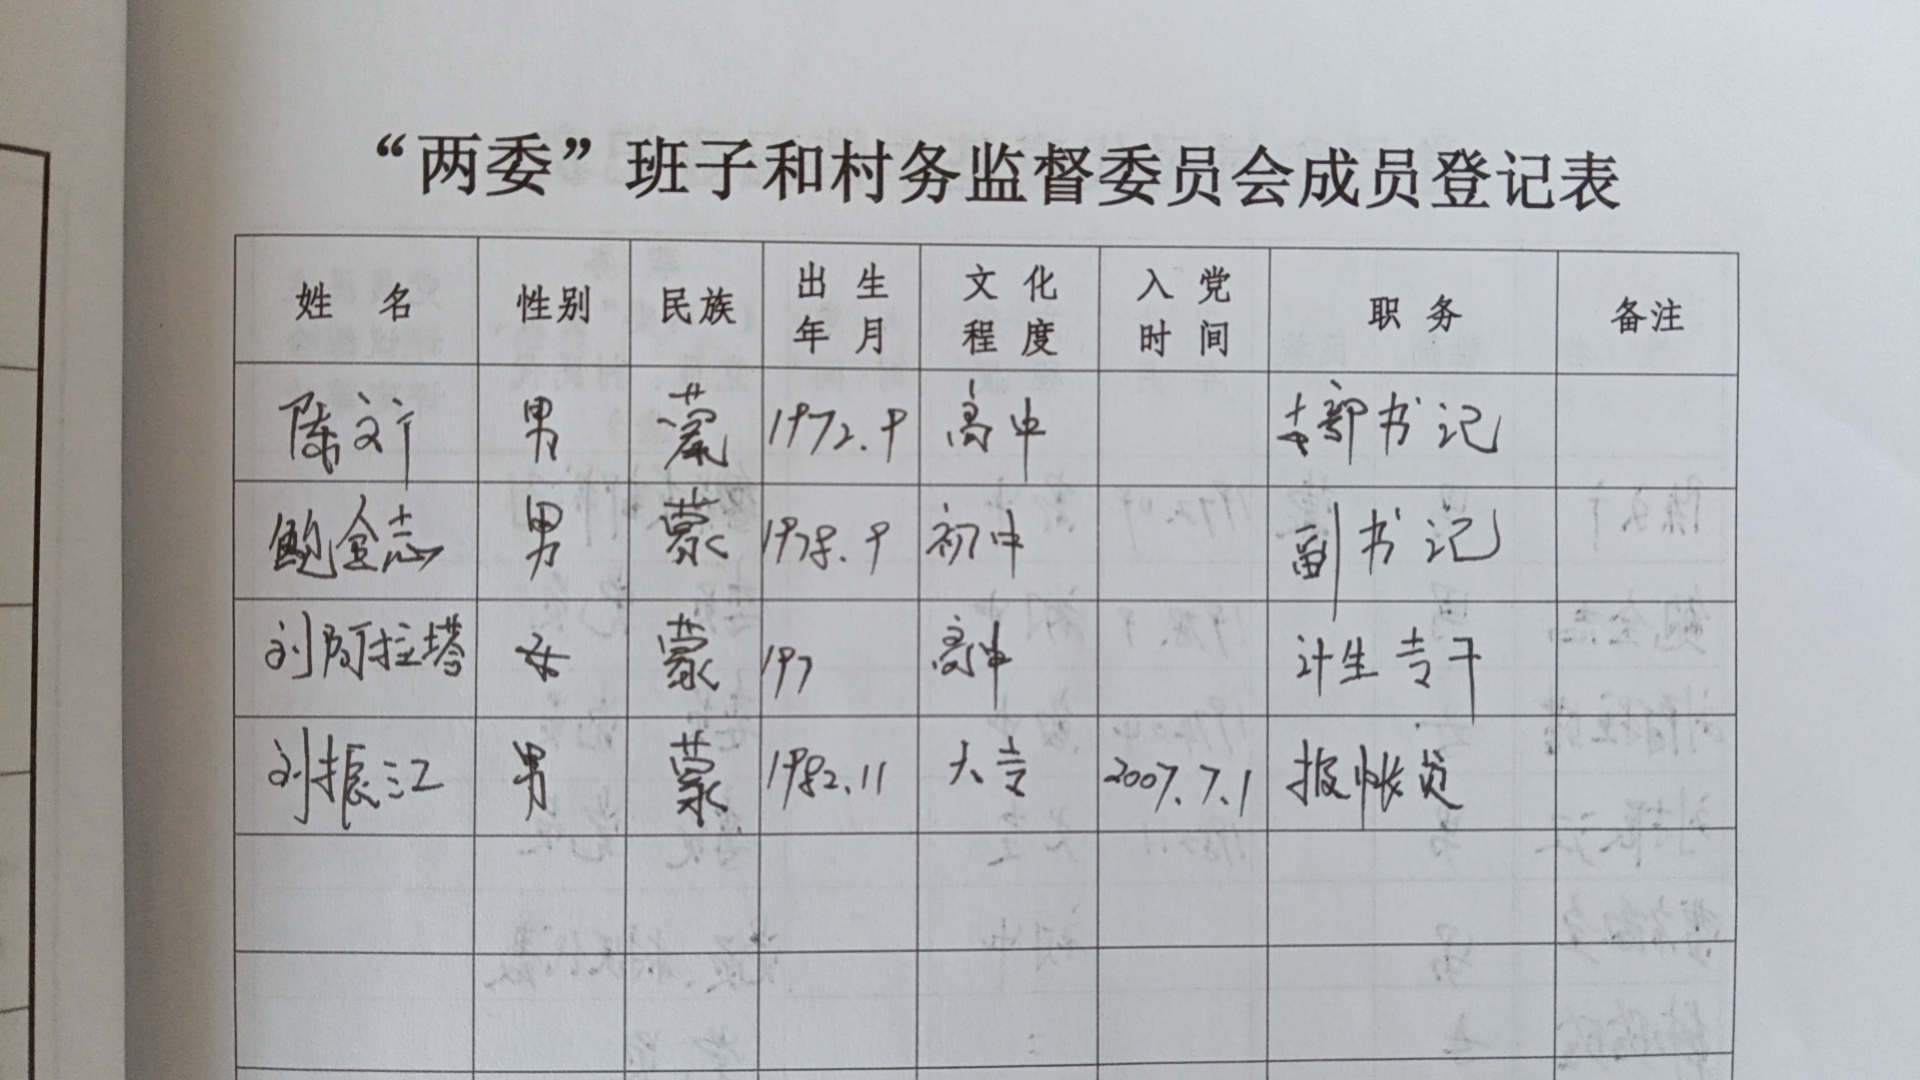 “两委”班子和村务监督委员会成员登记表
姓 名 性别 民族 出生年月 文化程度 入党时间 职务 备注
陈文 男 蒙 1972.9 高中 支部书记
鲍金志 男 蒙 1978.9 初中 副书记
刘阿拉塔 女 蒙 197 高中 计生专干
刘振江 男 蒙 1982.11 大专 2007.7.1 报帐员